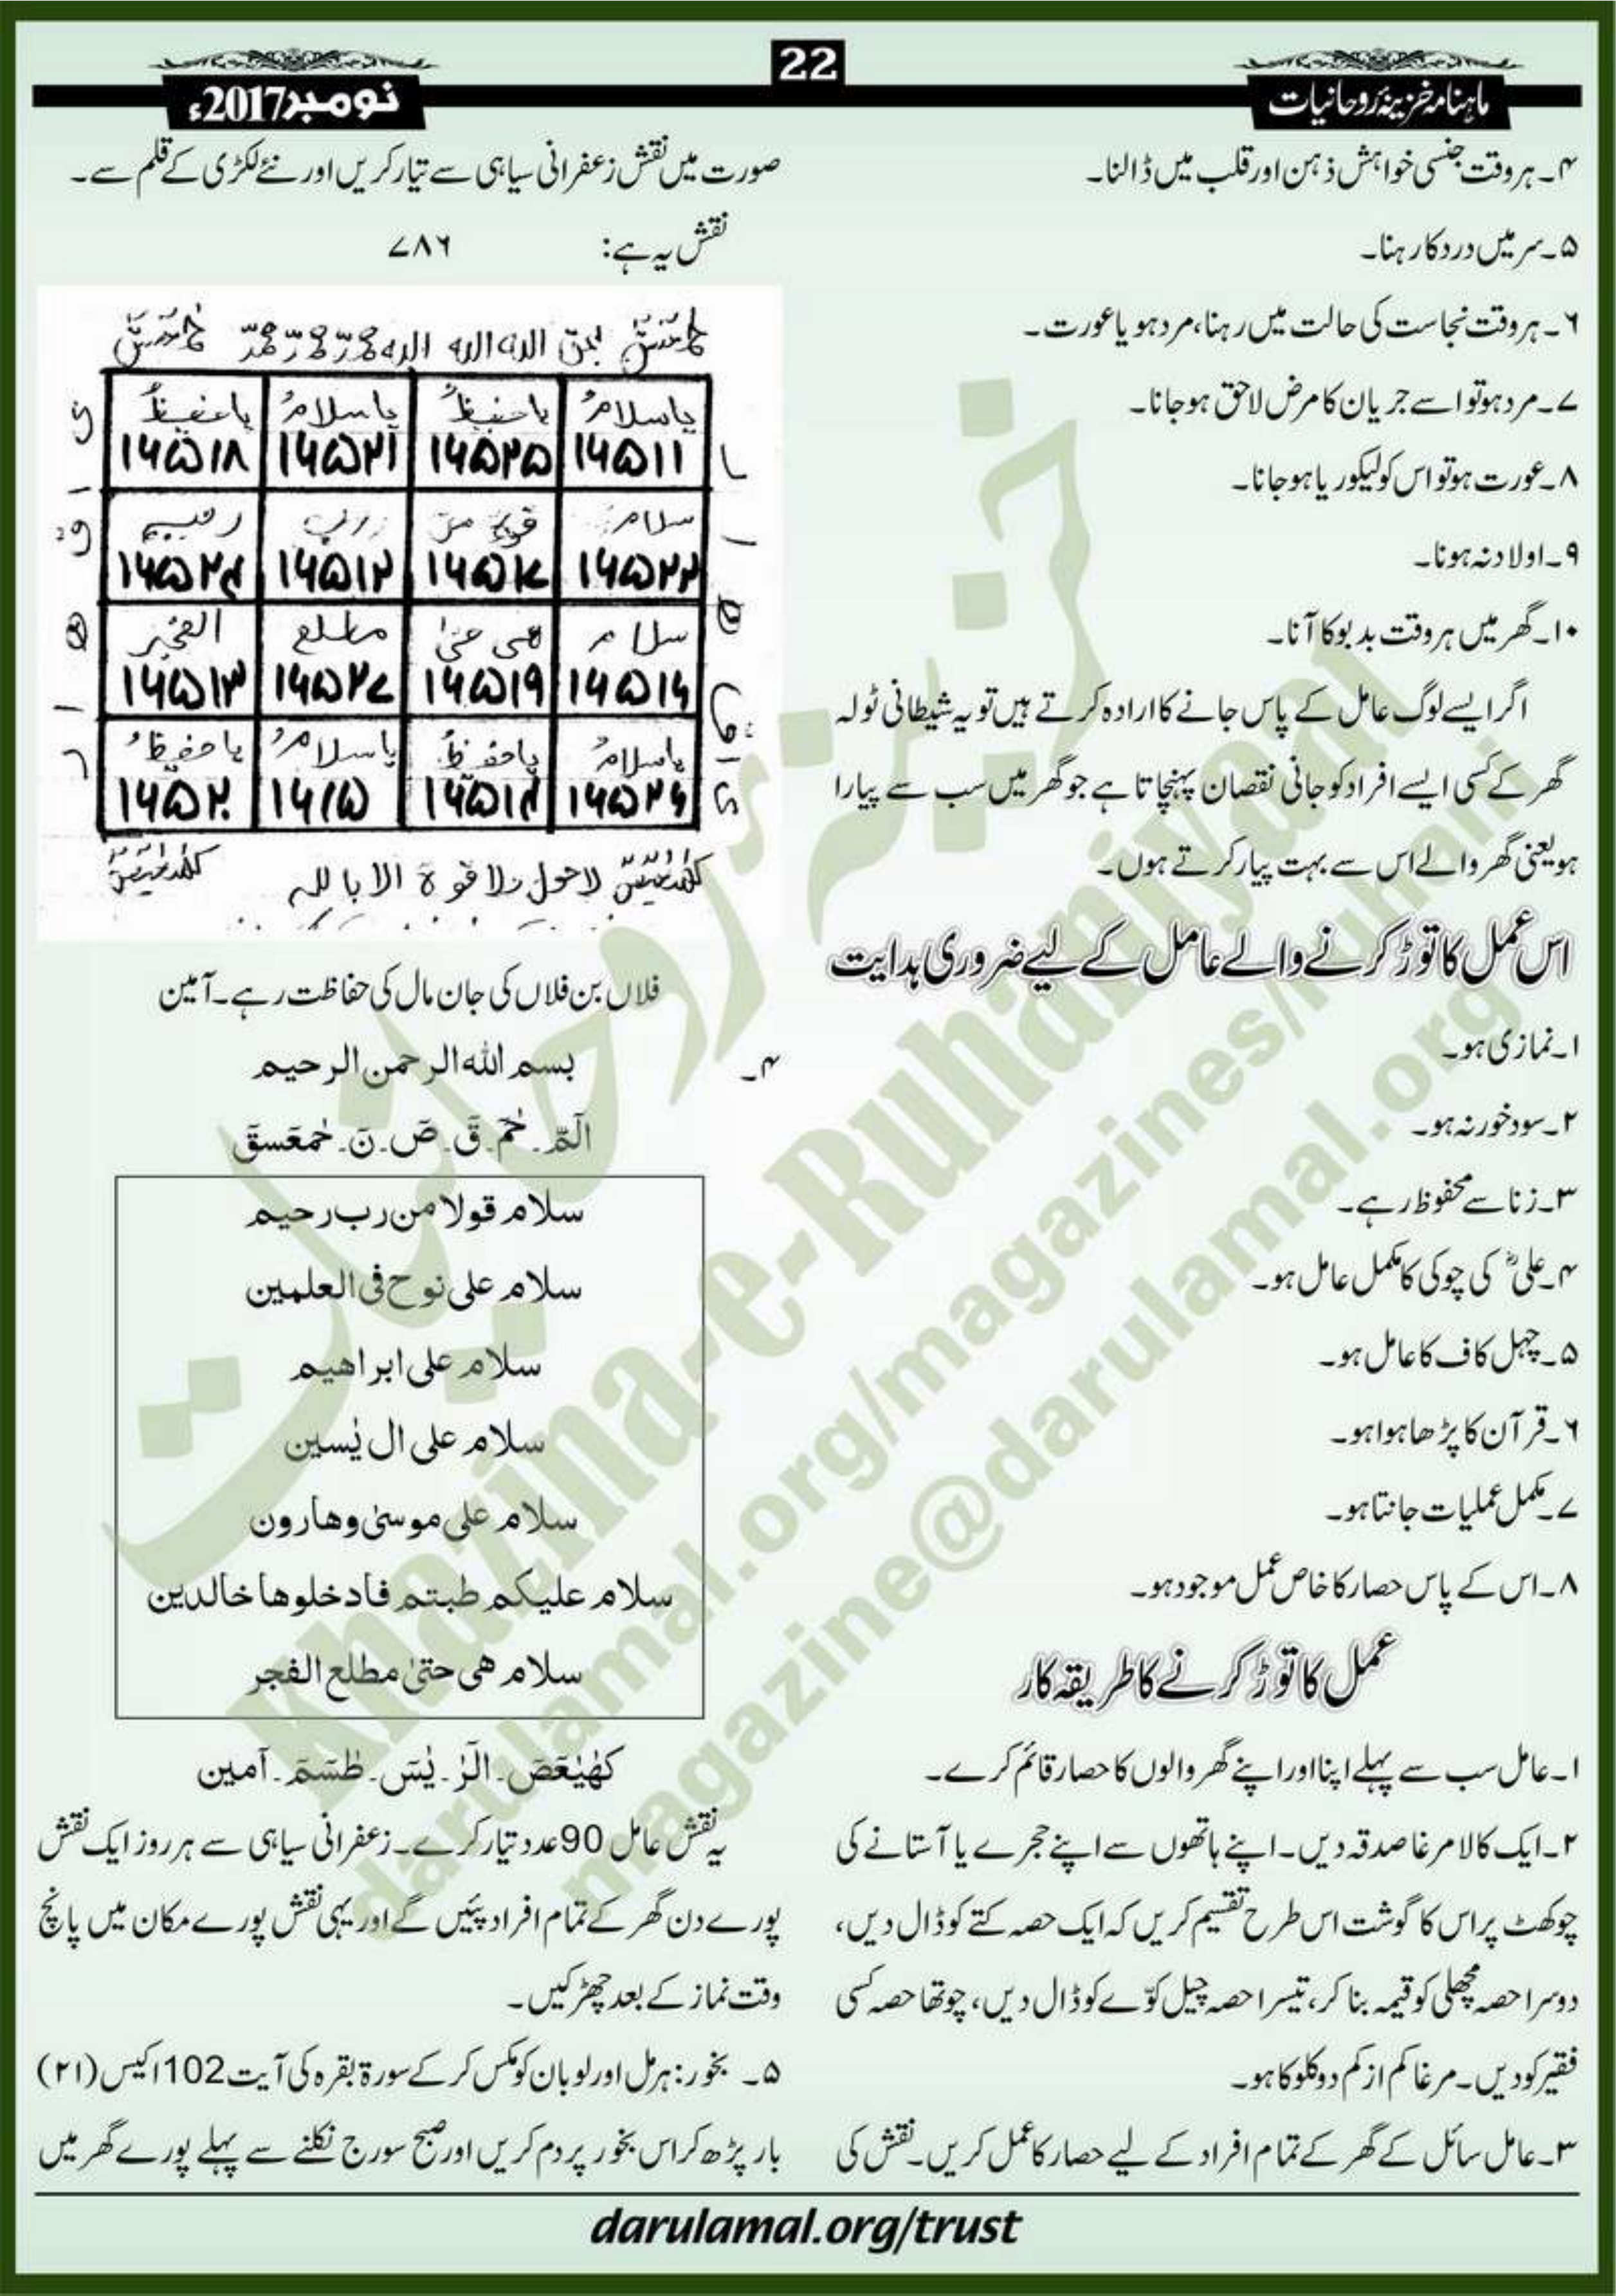 ماہنامہ خزینۂ روحانیات
22
نومبر2017ء
۴۔ہر وقت جنسی خواہش ذہن اور قلب میں ڈالنا۔
۵۔سر میں درد کا رہنا۔
۶۔ہر وقت نجاست کی حالت میں رہنا، مرد ہو یا عورت۔
۷۔مرد ہو تو اسے جریان کا مرض لاحق ہو جانا۔
۸۔عورت ہو تو اس کو لیکوریا ہو جانا۔
۹۔اولاد نہ ہونا۔
۱۰۔گھر میں ہر وقت بدبو کا آنا۔
اگر ایسے لوگ عامل کے پاس جانے کا ارادہ کرتے ہیں تو یہ شیطانی ٹولہ
گھر کے کسی ایسے افراد کو جانی نقصان پہنچاتا ہے جو گھر میں سب سے پیارا
ہو یعنی گھر والے اس سے بہت پیار کرتے ہوں۔
اس عمل کا توڑ کرنے والے عامل کے لیے ضروری ہدایت
۱۔نمازی ہو۔
۲۔سود خور نہ ہو۔
۳۔زنا سے محفوظ رہے۔
۴۔علیؓ کی چوکی کا مکمل عامل ہو۔
۵۔چہل کاف کا عامل ہو۔
۶۔قرآن کا پڑھا ہوا ہو۔
۷۔مکمل عملیات جانتا ہو۔
۸۔اس کے پاس حصار کا خاص عمل موجود ہو۔
عمل کا توڑ کرنے کا طریقہ کار
۱۔عامل سب سے پہلے اپنا اور اپنے گھر والوں کا حصار قائم کرے۔
۲۔ایک کالا مرغا صدقہ دیں۔اپنے ہاتھوں سے اپنے حجرے یا آستانے کی
چوکھٹ پر اس کا گوشت اس طرح تقسیم کریں کہ ایک حصہ کتے کو ڈال دیں،
دوسرا حصہ مچھلی کو قیمہ بنا کر، تیسرا حصہ چیل کوّے کو ڈال دیں، چوتھا حصہ کسی
فقیر کو دیں۔مرغا کم از کم دو کلو کا ہو۔
۳۔عامل سائل کے گھر کے تمام افراد کے لیے حصار کا عمل کریں۔نقش کی
صورت میں نقش زعفرانی سیاہی سے تیار کریں اور نئے لکڑی کے قلم سے۔
نقش یہ ہے: ۷۸۶
یاسلامُ یاحفیظُ یاسلامُ یاحفیظُ
۱۶۵۱۱ ۱۶۵۲۵ ۱۶۵۲۱ ۱۶۵۱۸
سلام رب رحیم
۱۶۵۲۲ ۱۶۵۱۷ ۱۶۵۱۲ ۱۶۵۲۴
سلام ھی حتیٰ مطلع الفجر
۱۶۵۱۶ ۱۶۵۱۹ ۱۶۵۲۷ ۱۶۵۱۳
یاسلامُ یاحفیظُ یاسلامُ یاحفیظُ
۱۶۵۲۶ ۱۶۵۱۴ ۱۶۱۵ ۱۶۵۲۰
کھیعص لاحول ولا قوة الا باللہ کھیعص
فلاں بن فلاں کی جان مال کی حفاظت رہے۔آمین
۴۔ بسم اللہ الرحمن الرحیم
الٓمّٓ۔حٰمٓ۔قٓ۔صٓ۔نٓ۔حٰمٓعٓسقٓ
سلام قولا من رب رحیم
سلام علی نوح فی العلمین
سلام علی ابراھیم
سلام علی ال یٰسین
سلام علی موسیٰ وھارون
سلام علیکم طبتم فادخلوھا خالدین
سلام ھی حتیٰ مطلع الفجر
کھٰیٰعٓصٓ۔الٓرٰ۔یٰسٓ۔طٰسٓمٓ۔آمین
یہ نقش عامل 90 عدد تیار کرے۔زعفرانی سیاہی سے ہر روز ایک نقش
پورے دن گھر کے تمام افراد پئیں گے اور یہی نقش پورے مکان میں پانچ
وقت نماز کے بعد چھڑکیں۔
۵۔ بخور: ہرمل اور لوبان کو مکس کر کے سورۃ بقرہ کی آیت 102 اکیس (۲۱)
بار پڑھ کر اس بخور پر دم کریں اور صبح سورج نکلنے سے پہلے پورے گھر میں
darulamal.org/trust
خزینہ روحانیات
Khazina-e-Ruhaniyaat
darulamal.org/magazines/ruhani
magazine@darulamal.org